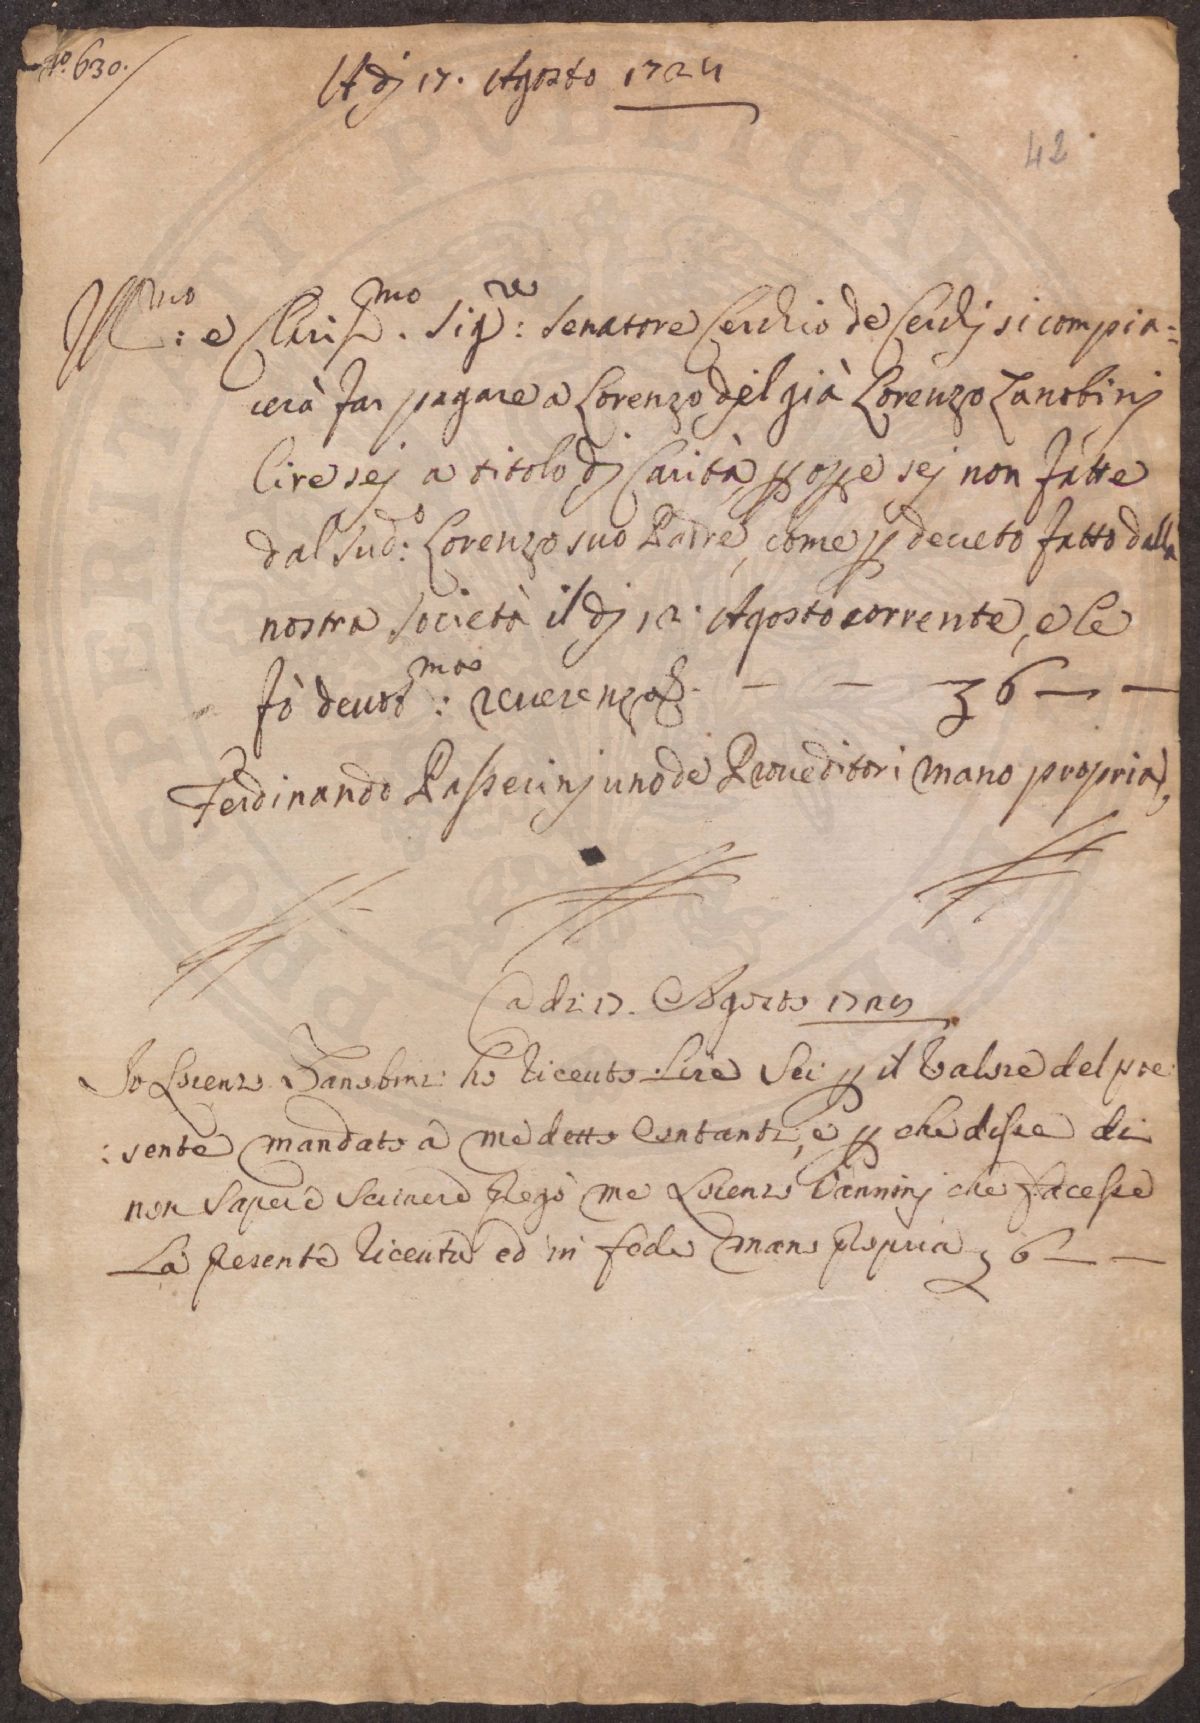 No. 630.
A dj 17. Agosto 1724
42
Ill.mo: e Claris.mo Sig.re: Senatore Cerchio de Cerchj si compia=
cerà far pagare a Lorenzo del già Lorenzo Zanobinj
Lire sej a titolo dj Carità p opre sej non fatte
dal sud.o: Lorenzo suo Padre, come p decreto fatto dalla
nostra società il dj 12. Agosto corrente, e le
fò deuot.mas: reuerenza. — — 36 — —
Ferdinando Passerinj uno de Proueditori mano propria,
a di: 17. Agosto 1724
Io Lorenzo Zanobini: ho riceuto Lire Sei p il Valore del pre:
:sente mandato a me detto Contanti, e p che disse di
non Sapere Scriuere pregò me Lorenzo Vanninj che facesse
La presente riceuta ed in fede mano propria 36 — —
PROSPERITATI PVBLICAE